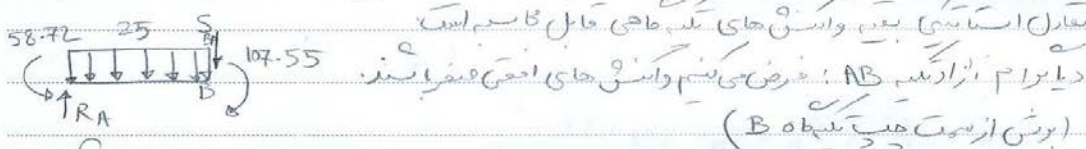 تعادل استاتیکی بقیه واکنش های تکیه گاهی قابل محاسبه است:
58.72 25 S_BA 107.55
دیاگرام آزاد تکه AB: فرض می کنیم واکنش های افقی صفر باشند.
R_A B
(برش از سمت چپ تکیه گاه B)